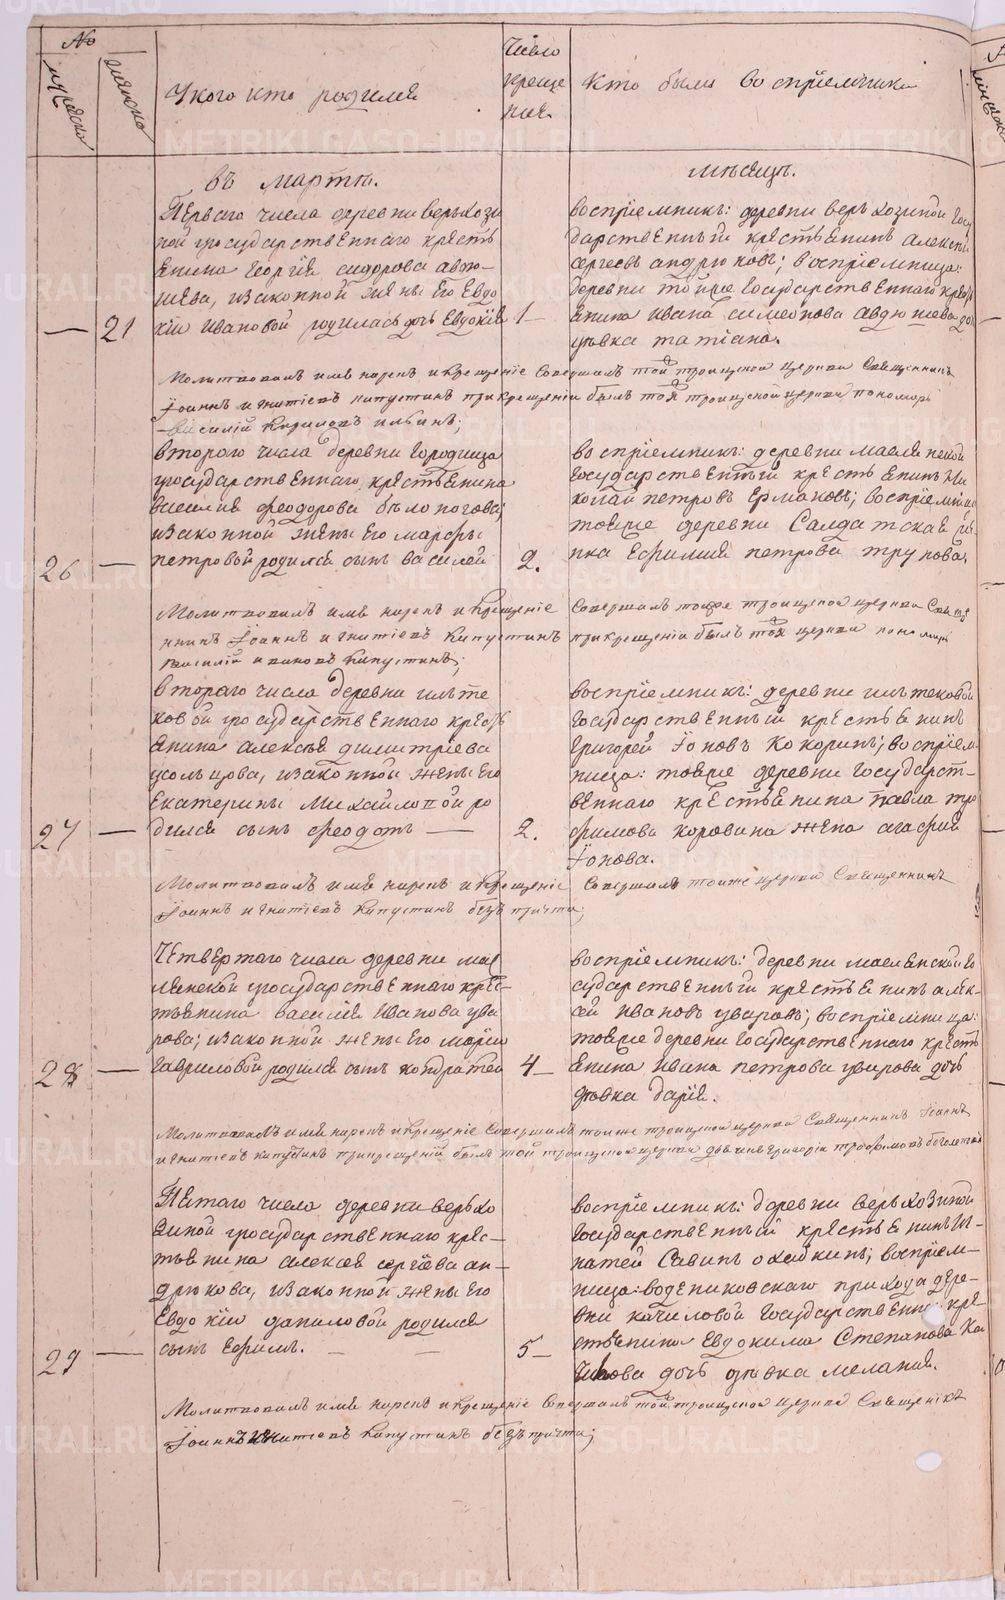 №
мужеска
женска
У кого кто родился
Число
креще
ния.
Кто были восприемники
въ мартѣ.
мѣсяцѣ.
Перваго числа деревни верьхози
ной государственнаго кресть
янина Георгія сидорова авдю-
шева, изаконной жены Его Евдо
кіи ивановой родилась дочь Евдокія
— 21
1—
восприемникъ: деревни верьхозиной госу
дарственный крестьянинъ алексѣй
сергеевъ андрюковъ; восприемница:
деревни тойже государственнаго кресть
янина ивана симеонова авдюшева до
дѣвка татіана.
Молитвовалъ имя нарекъ и крещеніе Совершалъ той троицкой церкви Священникъ
Іоаннъ игнатіевъ капустинъ прикрещеніи былъ той троицкой церкви пономарь
василій Кириловъ ильинъ;
втораго числа деревни городища
государственнаго крестьянина
василия феодорова былоногова;
изаконной жены его марфы
петровой родился сынъ василей
26 —
2.
восприемникъ: деревни маслянской
государственный крестьянинъ Ни
колай петровъ Ермаковъ; восприемница
тойже деревни Салдатская
нка Ефимия петрова трунова.
Молитвовалъ имя нарекъ и крещеніе Совершалъ тойже троицкой церкви Свяще
нникъ Іоаннъ игнатіевъ Капустинъ прикрещеніи былъ той церкви пономарь
василій ивановъ Капустинъ;
втораго числа деревни гилте
ковой государственнаго кресть
янина алексѣя димитріева
усольцова, изаконной жены Его
Екатерины Михайловой ро
дился сынъ феодотъ —
27 —
2.
восприемникъ: деревни гилтековой
государственный крестьянинъ
григорей Іоновъ Кокоринъ; восприем
ница: тойже деревни государст-
веннаго крестьянина павла тро
фимова коровина жена агафия
Іонова.
Молитвовалъ имя нарекъ и крещеніе Совершалъ тоиже церкви Священникъ
Іоаннъ игнатіевъ Капустинъ безъ причта;
Четвертаго числа деревни мас
лянской государственнаго крес-
тьянина василия иванова ува
рова; изаконной жены его маріи
гавриловой родился сынъ кондратей
28 —
4—
восприемникъ: деревни маслянской го
сударственный крестьянинъ алек-
сѣй ивановъ уваровъ; восприемница:
тойже деревни государственнаго кресть
янина ивана петрова уварова дочь
дѣвка дарія.
Молитвовалъ имя нарекъ и крещеніе Совершалъ тоиже троицкой церкви Священникъ Іоаннъ
игнатіевъ капустинъ прикрещеніи былъ той троицкой церкви дьячекъ григорій
Пятаго числа деревни верьхо
зиной государственнаго крес-
тьянина алексѣя сергіева ан-
дрюкова, изаконной жены его
Евдокіи даниловой родился
сынъ Ефимъ. — —
29 —
5—
восприемникъ: деревни верьхозиной
государственный крестьянинъ И-
патей Савинъ охабкинъ; восприем-
ница: водениковскаго прихода дере-
вни качиловой государственна кре-
стьянина Евдокима Степанова Ка
чкова дочь дѣвка мелания.
Молитвовалъ имя нарекъ и крещеніе Совершалъ той троицкой церкви Священикъ
Іоаннъ игнатіевъ Капустинъ безъ причта;